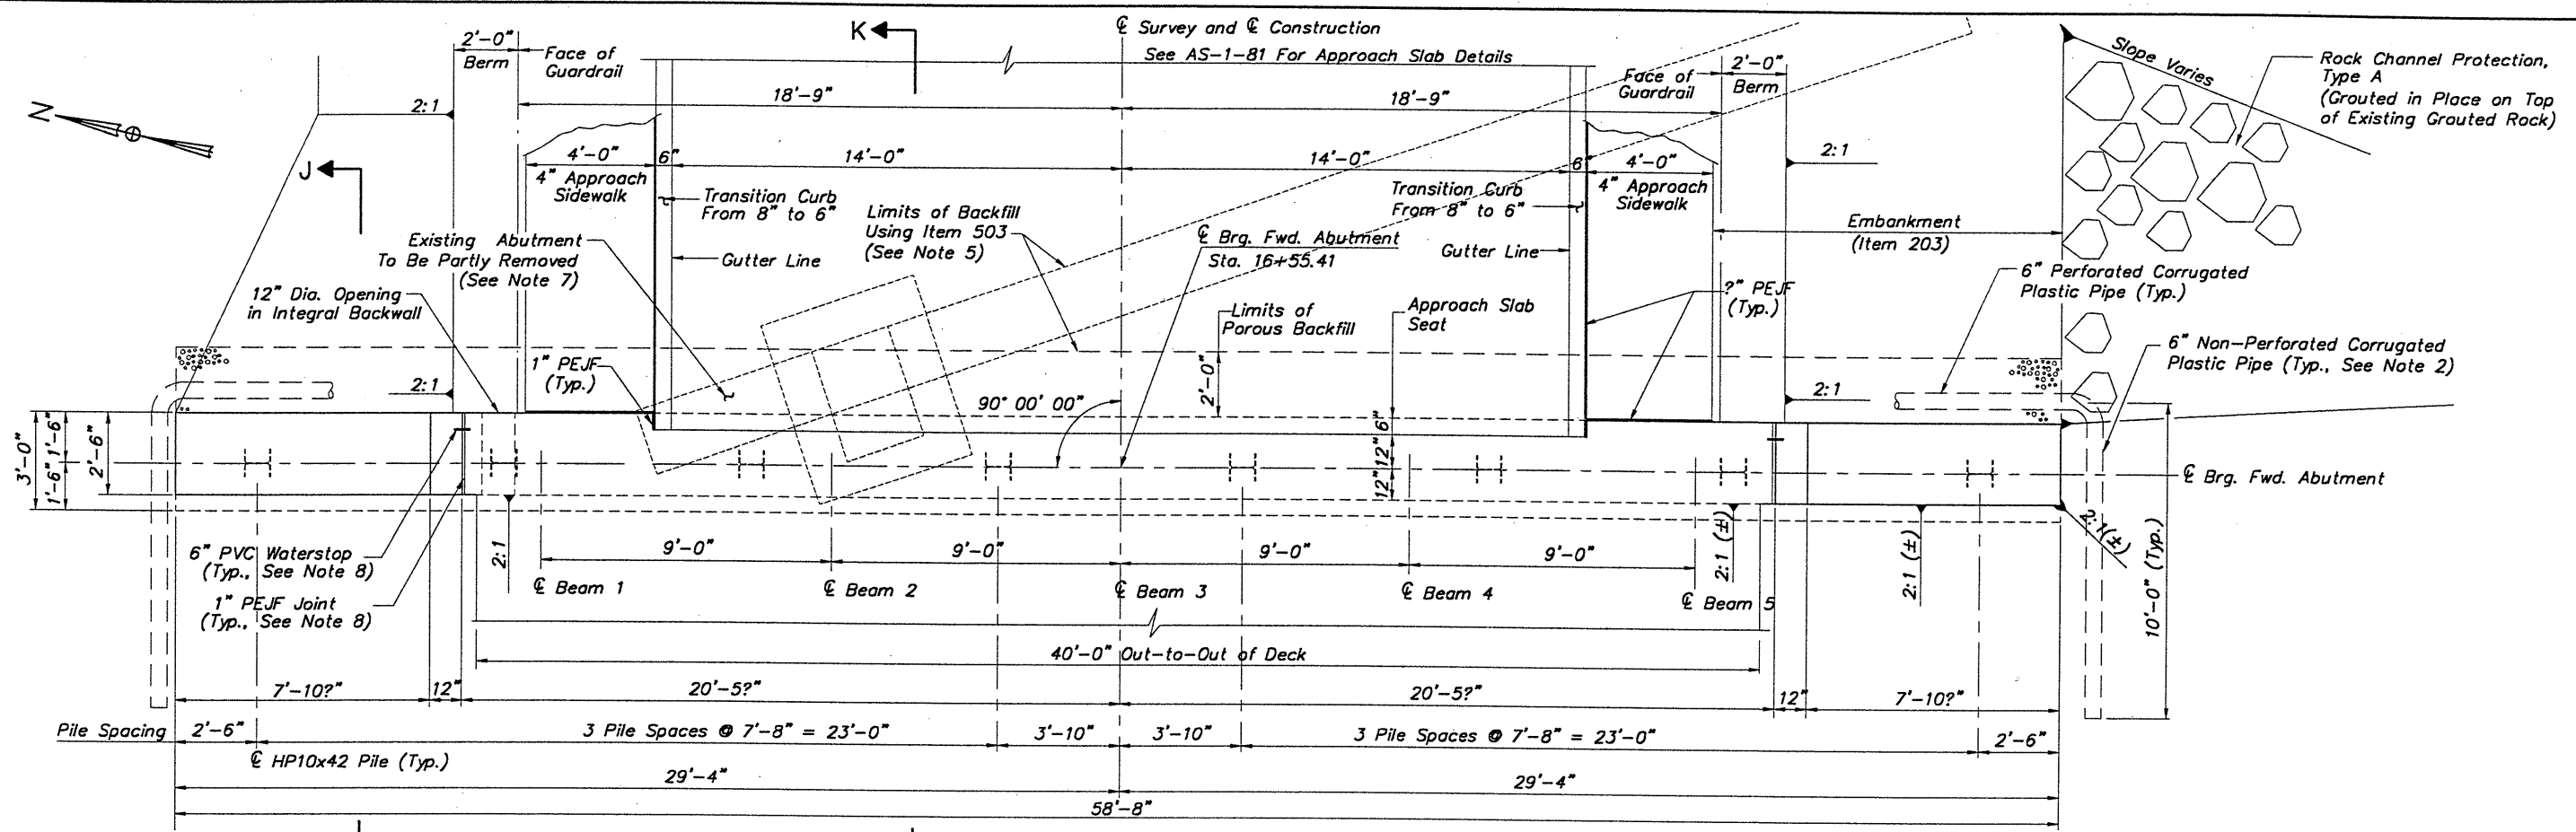 ℄ Survey and ℄ Construction
See AS-1-81 For Approach Slab Details
K
2'-0"
Berm
Face of
Guardrail
18'-9"
18'-9"
Face of
Guardrail
2'-0"
Berm
Slope Varies
Rock Channel Protection,
Type A
(Grouted in Place on Top
of Existing Grouted Rock)
N
2:1
J
4'-0"
6"
14'-0"
14'-0"
6
4'-0"
2:1
4" Approach
Sidewalk
Transition Curb
From 8" to 6"
Limits of Backfill
Using Item 503
(See Note 5)
Transition Curb
From 8" to 6"
4" Approach
Sidewalk
Existing Abutment
To Be Partly Removed
(See Note 7)
Gutter Line
℄ Brg. Fwd. Abutment
Sta. 16+55.41
Gutter Line
Embankment
(Item 203)
12" Dia. Opening
in Integral Backwall
Limits of
Porous Backfill
Approach Slab
Seat
?" PEJF
(Typ.)
6" Perforated Corrugated
Plastic Pipe (Typ.)
6" Non-Perforated Corrugated
Plastic Pipe (Typ., See Note 2)
2:1
1" PEJF
(Typ.)
90° 00' 00"
2'-0"
2:1
3'-0"
1'-6"
1'-6"
2'-6"
6"
12"
12"
℄ Brg. Fwd. Abutment
6" PVC Waterstop
(Typ., See Note 8)
1" PEJF Joint
(Typ., See Note 8)
2:1
9'-0"
9'-0"
9'-0"
9'-0"
2:1 (±)
2:1 (±)
2:1(±)
10'-0" (Typ.)
℄ Beam 1
℄ Beam 2
℄ Beam 3
℄ Beam 4
℄ Beam 5
40'-0" Out-to-Out of Deck
7'-10?"
12"
20'-5?"
20'-5?"
12"
7'-10?"
Pile Spacing
2'-6"
3 Pile Spaces @ 7'-8" = 23'-0"
3'-10"
3'-10"
3 Pile Spaces @ 7'-8" = 23'-0"
2'-6"
℄ HP10x42 Pile (Typ.)
29'-4"
29'-4"
58'-8"